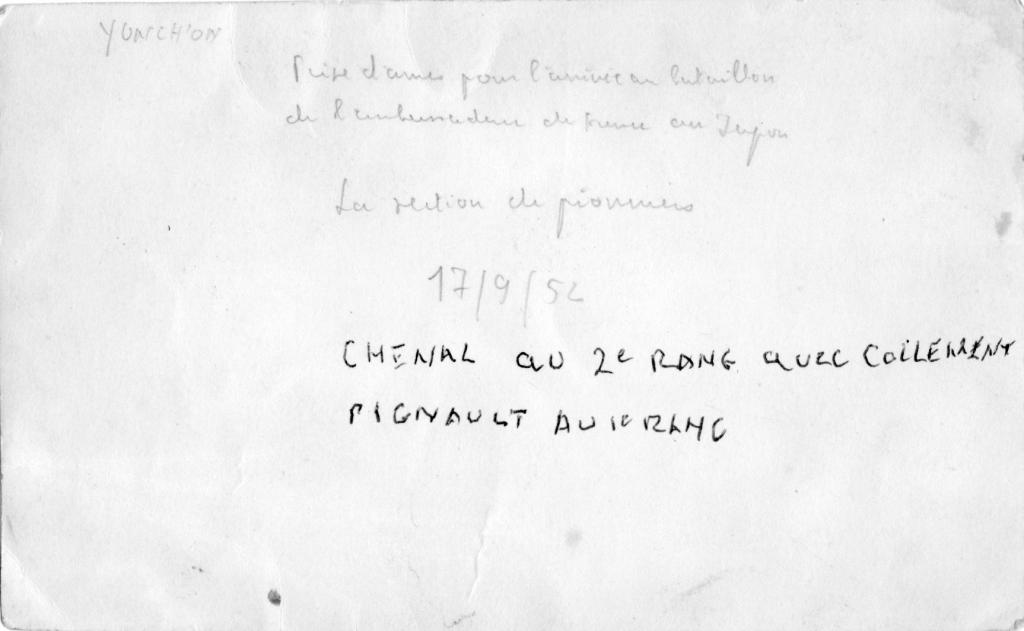 YONCH'ON
Prise d'armes pour l'arrivée au bataillon
de l'ambassadeur de France au Japon
La section de pionniers
17/9/52
CHENAL au 2e RANG avec COLLEMENT
PIGNAULT AU 1e RANG